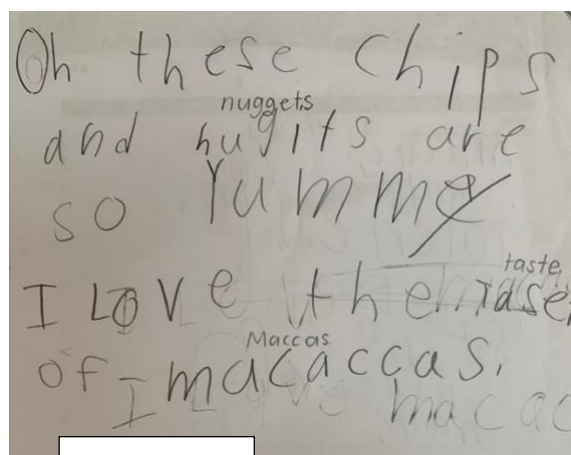 Oh these chips
nuggets
and nugits are
so Yumme
taste
I LOVE the tase
Maccas
of macaccas.
I
macac